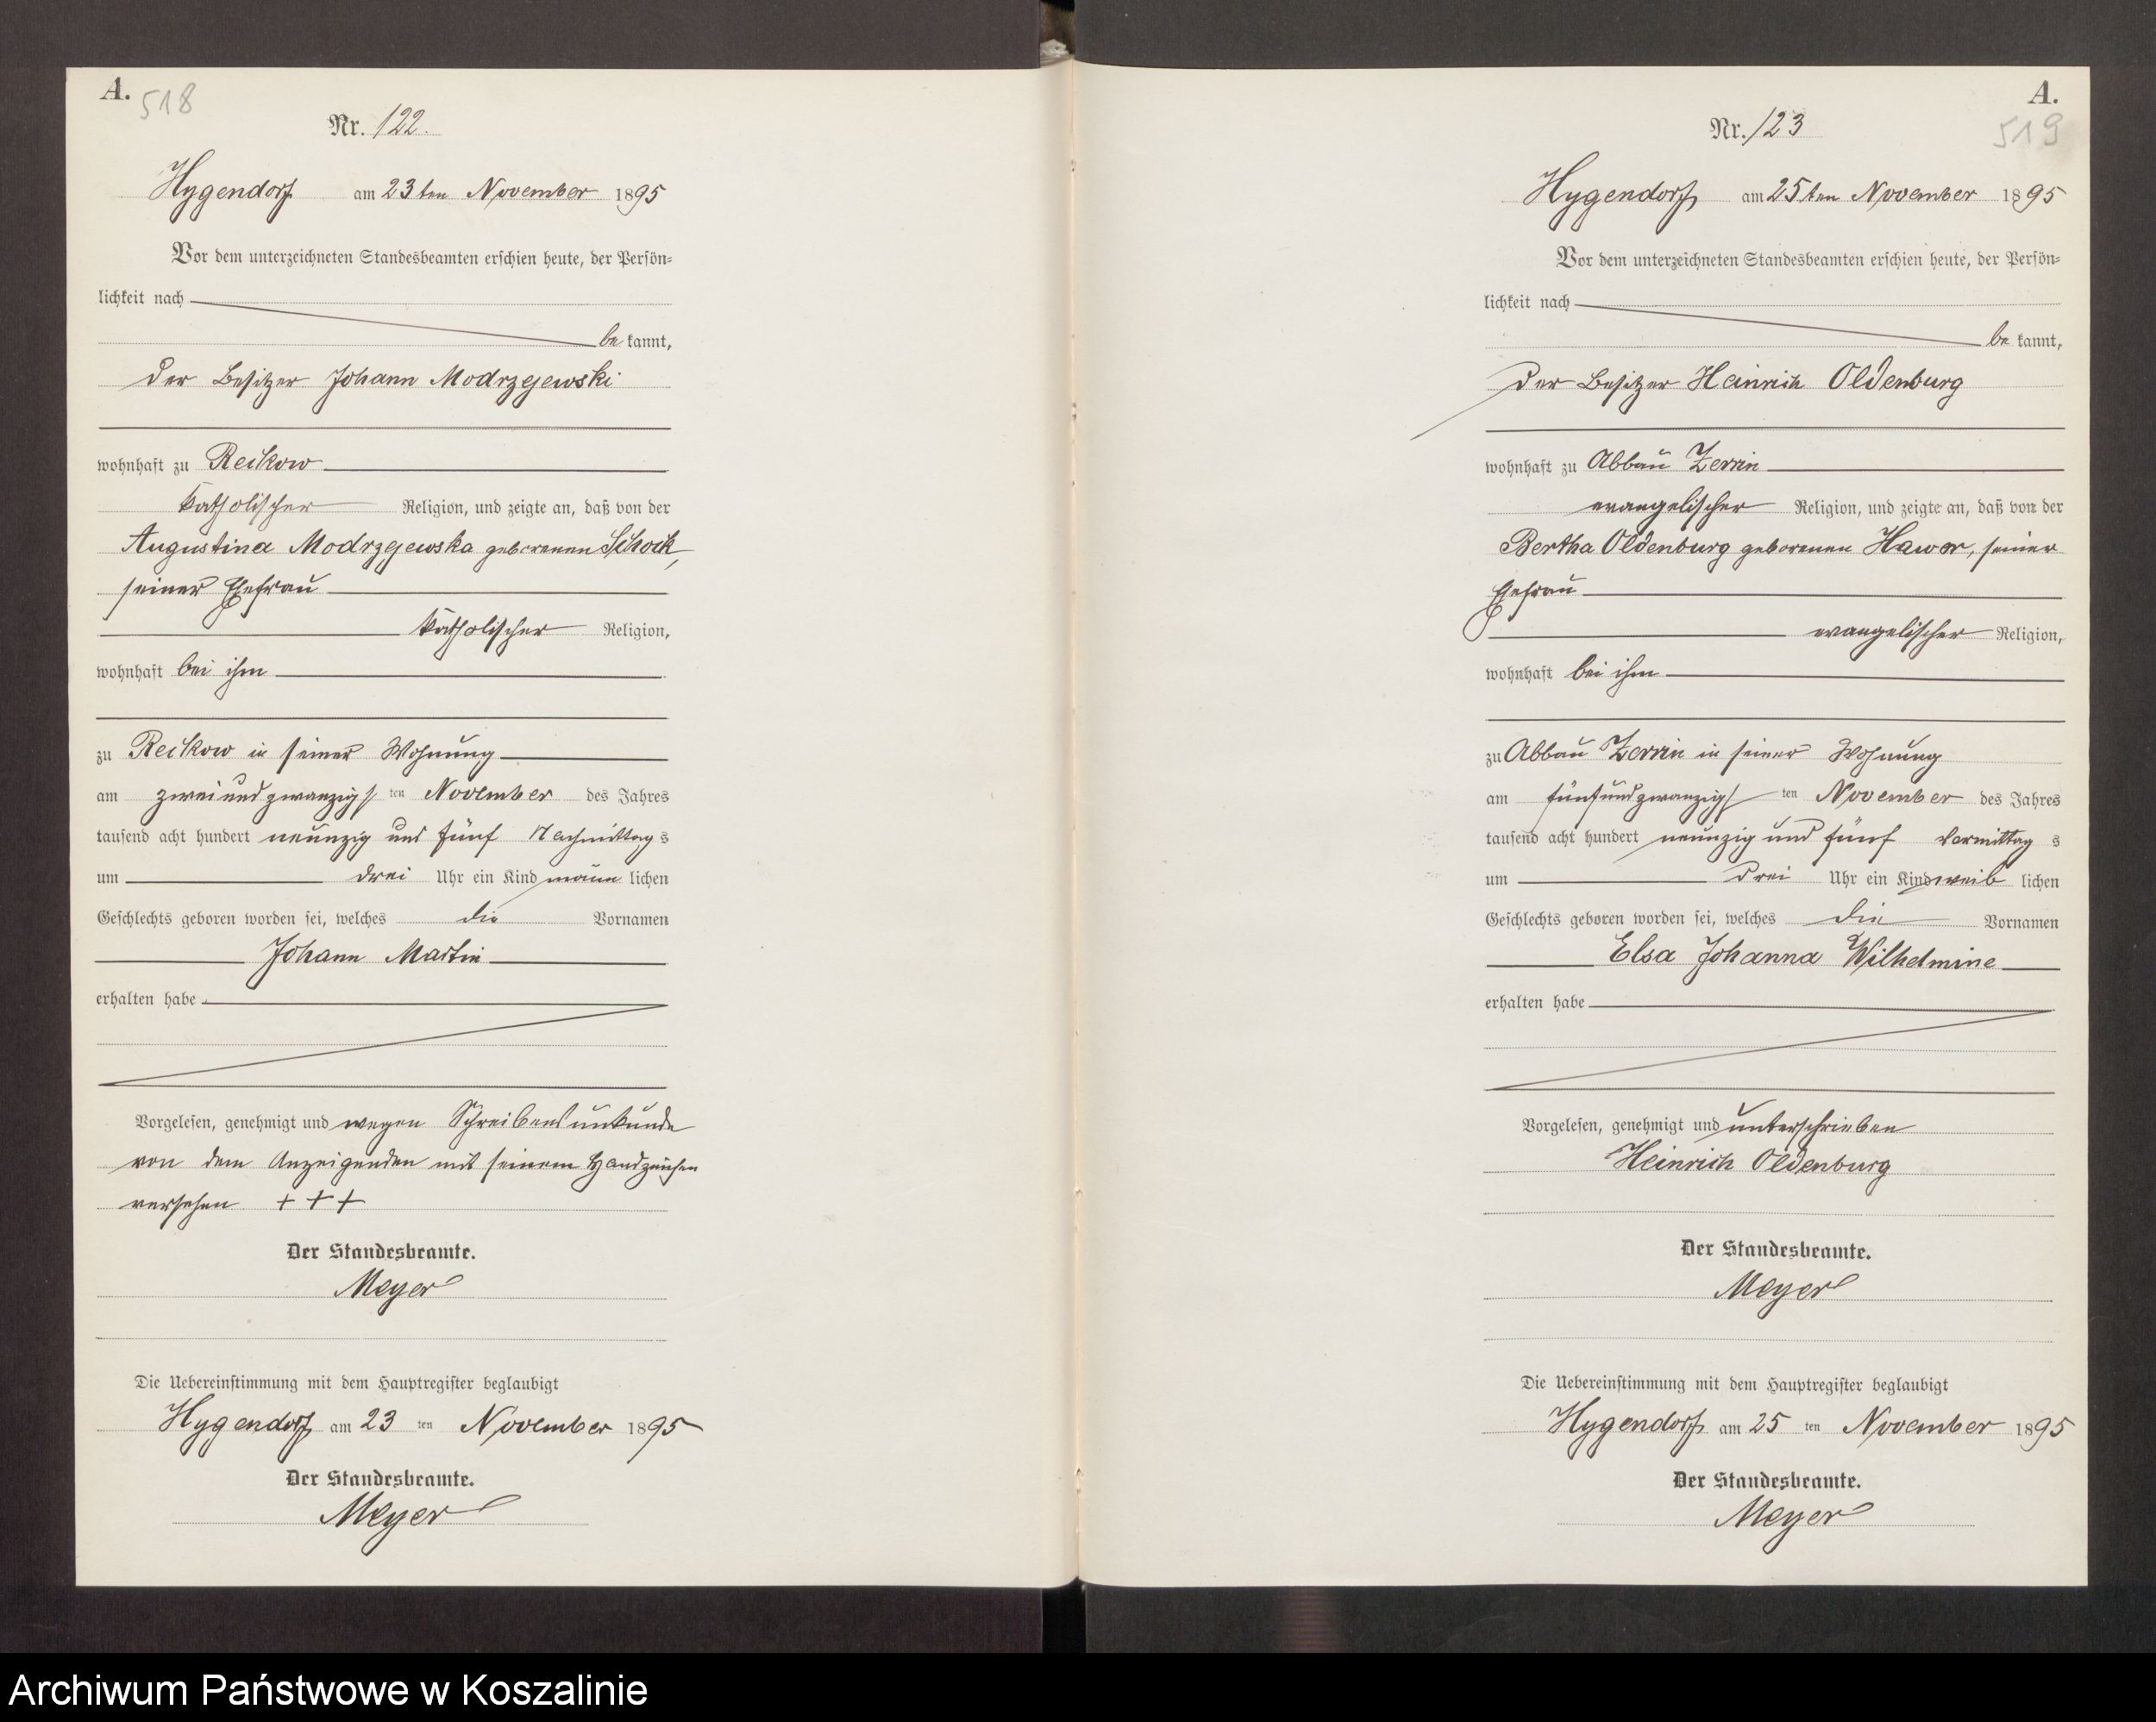 A.
518
Nr. 122.
Hygendorf am 23ten November 1895
Vor dem unterzeichneten Standesbeamten erschien heute, der Persön=
lichkeit nach
be kannt,
der Besitzer Johann Modrzejewski
wohnhaft zu Reckow
katholischer Religion, und zeigte an, daß von der
Augustina Modrzejewska geborenen Schock,
seiner Ehefrau
katholischer Religion,
wohnhaft bei ihm
zu Reckow in seiner Wohnung
am zweiundzwanzigs ten November des Jahres
tausend acht hundert neunzig und fünf Nachmittag s
um drei Uhr ein Kind männ lichen
Geschlechts geboren worden sei, welches die Vornamen
Johann Martin
erhalten habe
Vorgelesen, genehmigt und wegen Schreibensunkunde
von dem Anzeigenden mit seinem Handzeichen
versehen + + +
Der Standesbeamte.
Meyer
Die Uebereinstimmung mit dem Hauptregister beglaubigt
Hygendorf am 23 ten November 1895
Der Standesbeamte.
Meyer
A.
519
Nr. 123
Hygendorf am 25ten November 1895
Vor dem unterzeichneten Standesbeamten erschien heute, der Persön=
lichkeit nach
be kannt,
der Besitzer Heinrich Oldenburg
wohnhaft zu Abbau Zerrin
evangelischer Religion, und zeigte an, daß von der
Bertha Oldenburg geborenen Hawer, seiner
Ehefrau
evangelischer Religion,
wohnhaft bei ihm
zu Abbau Zerrin in seiner Wohnung
am fünfundzwanzigs ten November des Jahres
tausend acht hundert neunzig und fünf Vormittag s
um drei Uhr ein Kind weib lichen
Geschlechts geboren worden sei, welches die Vornamen
Elsa Johanna Wilhelmine
erhalten habe
Vorgelesen, genehmigt und unterschrieben
Heinrich Oldenburg
Der Standesbeamte.
Meyer
Die Uebereinstimmung mit dem Hauptregister beglaubigt
Hygendorf am 25 ten November 1895
Der Standesbeamte.
Meyer
Archiwum Państwowe w Koszalinie